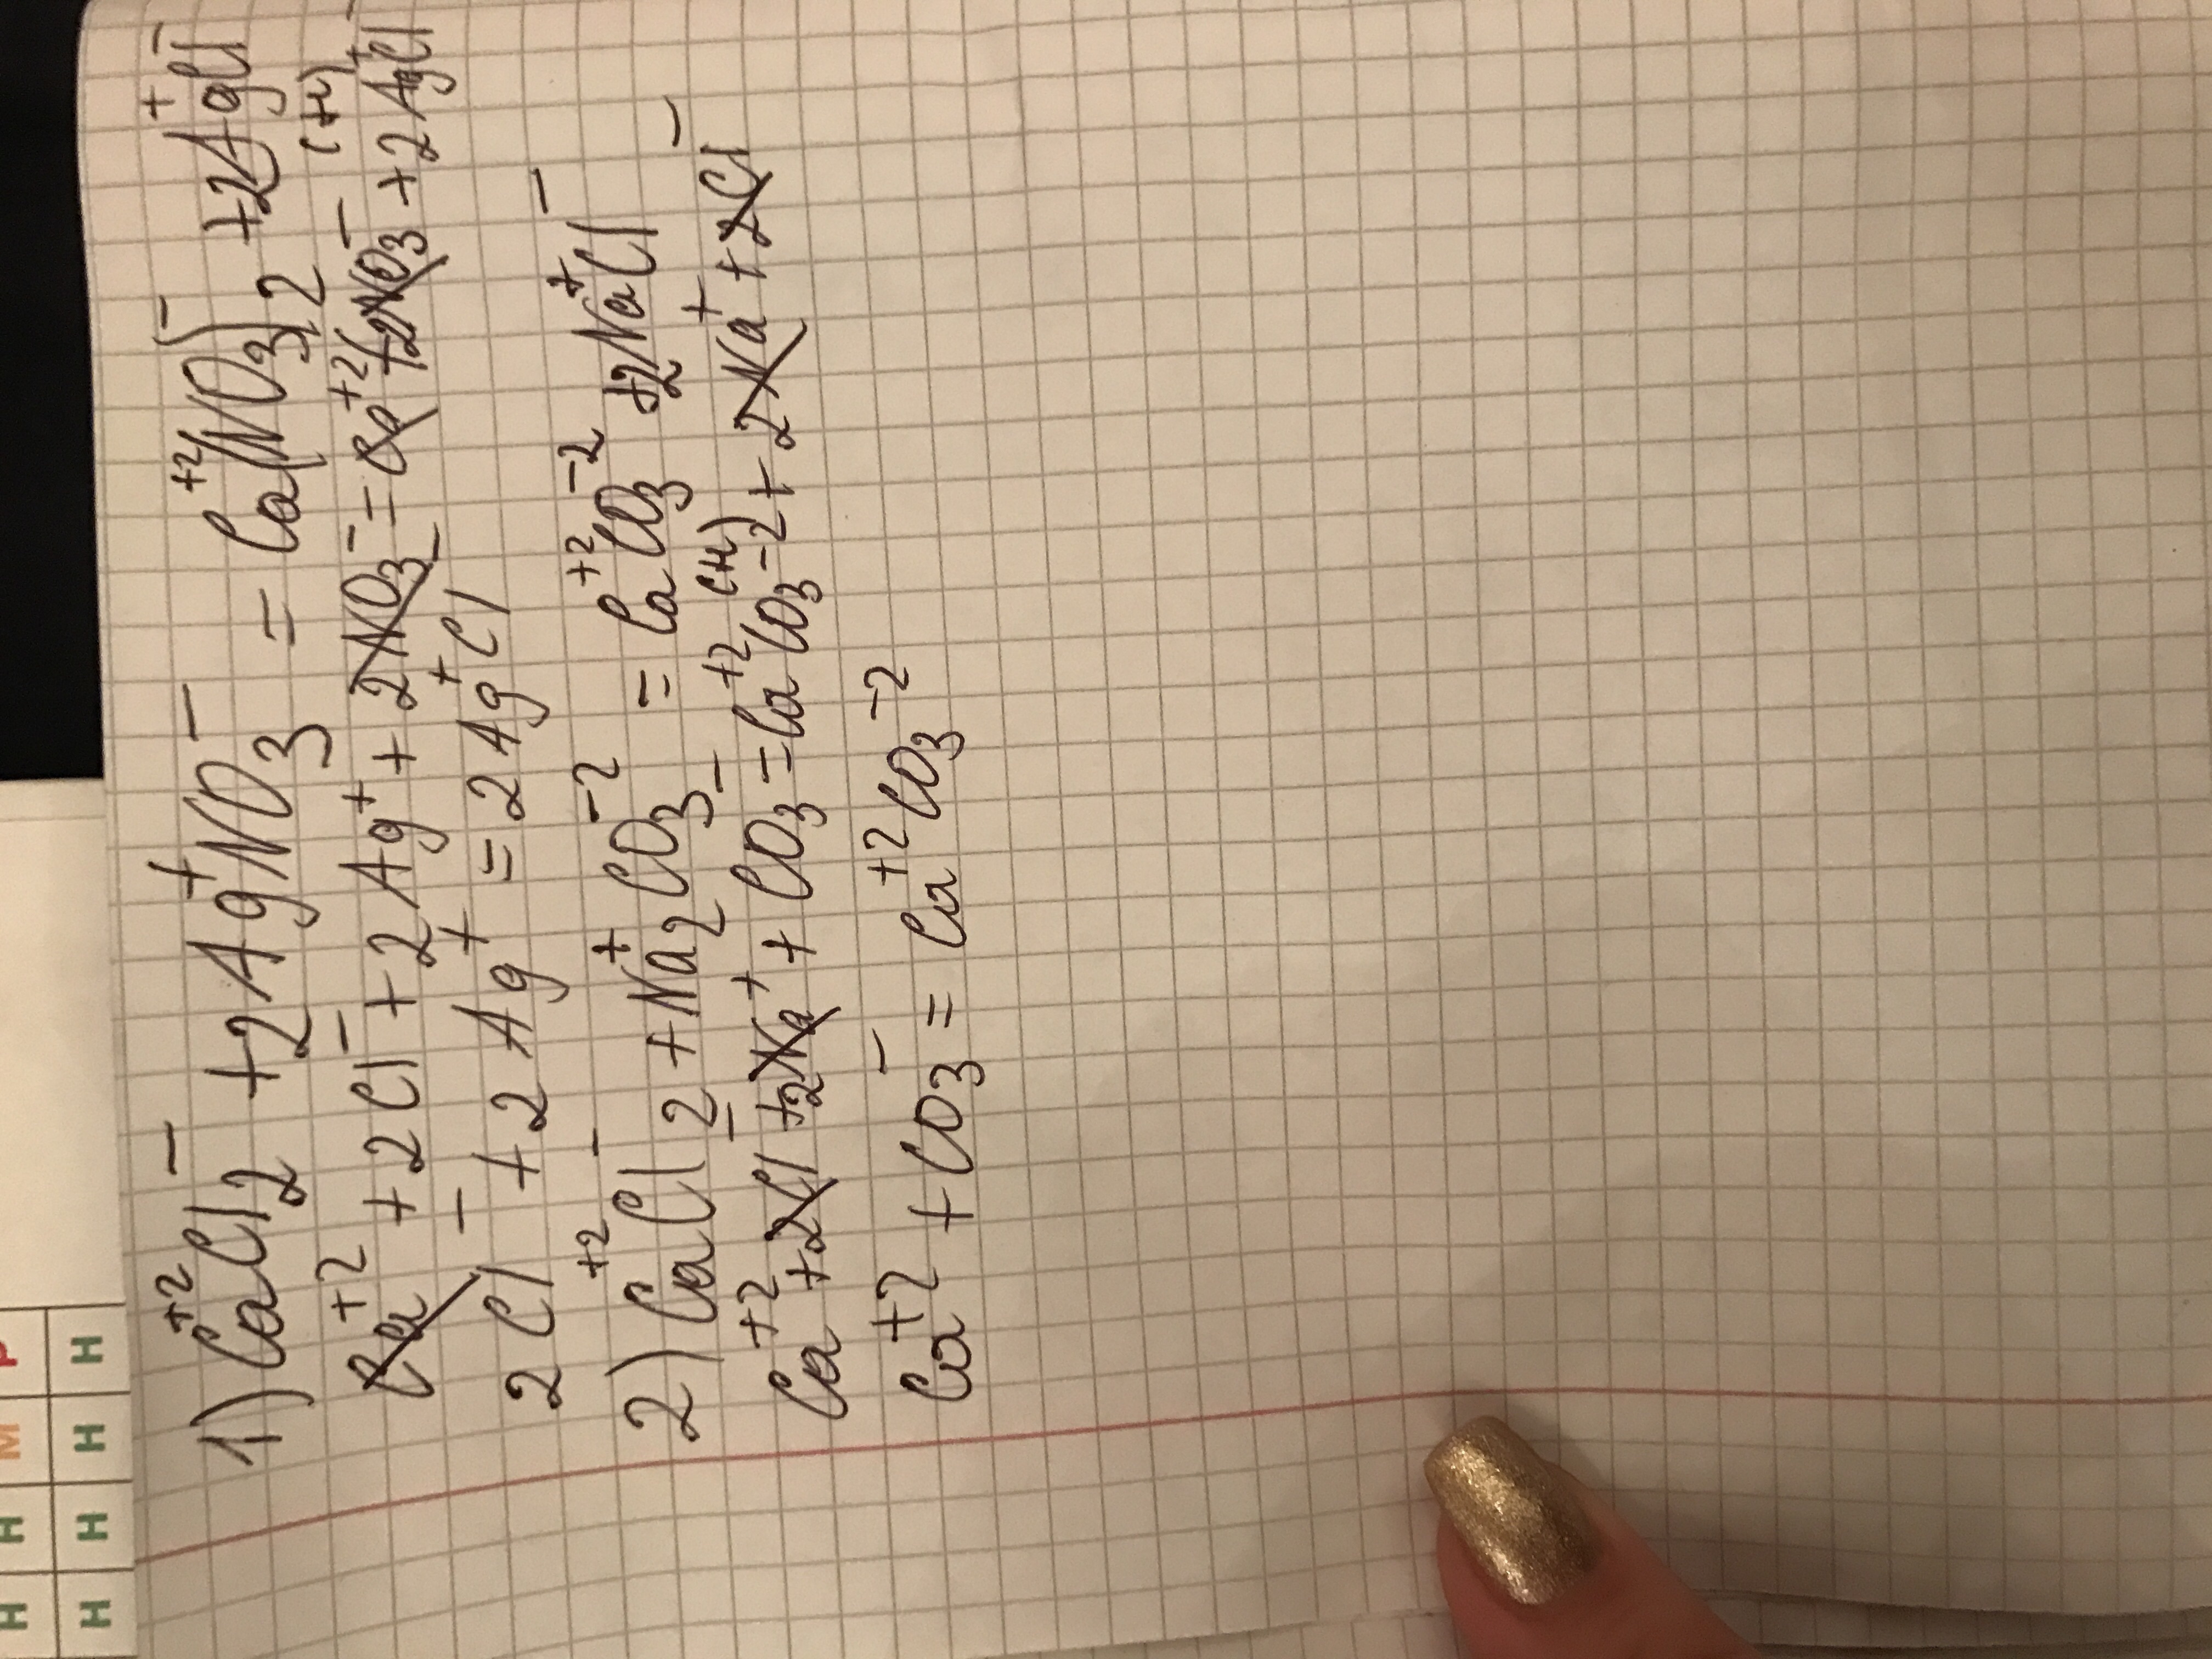 1) Ca⁺²Cl₂⁻ + 2Ag⁺NO₃⁻ = Ca⁺²(NO₃)₂⁻ + 2Ag⁺Cl⁻
Ca⁺² + 2Cl⁻ + 2Ag⁺ + 2NO₃⁻ = Ca⁺² + 2NO₃⁻ + 2Ag⁺Cl⁻ (+н)
2Cl⁻ + 2Ag⁺ = 2Ag⁺Cl⁻
2) Ca⁺²Cl₂⁻ + Na₂⁺CO₃⁻² = Ca⁺²CO₃⁻² + 2Na⁺Cl⁻
Ca⁺² + 2Cl⁻ + 2Na⁺ + CO₃⁻ = Ca⁺²CO₃⁻² (+н) + 2Na⁺ + 2Cl⁻
Ca⁺² + CO₃⁻ = Ca⁺²CO₃⁻²
Н Н М Р
Н Н Н Н